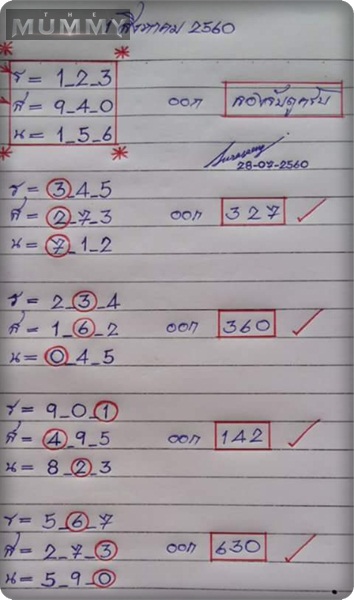 THE
MUMMY
1 สิงหาคม 2560
ร = 1_2_3
ส = 9_4_0 ออก ลองจับดูครับ
น = 1_5_6
28-07-2560
ร = 3_4_5
ส = 2_7_3 ออก 327
น = 7_1_2
ร = 2_3_4
ส = 1_6_2 ออก 360
น = 0_4_5
ร = 9_0_1
ส = 4_9_5 ออก 142
น = 8_2_3
ร = 5_6_7
ส = 2_7_3 ออก 630
น = 5_9_0